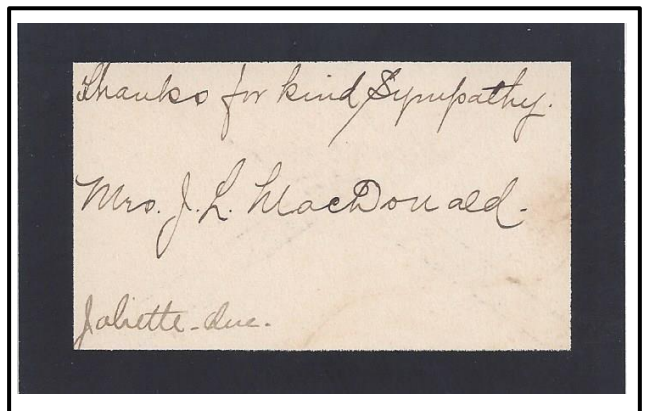 Thanks for kind Sympathy.
Mrs. J. L. MacDonald.
Joliette - Que.